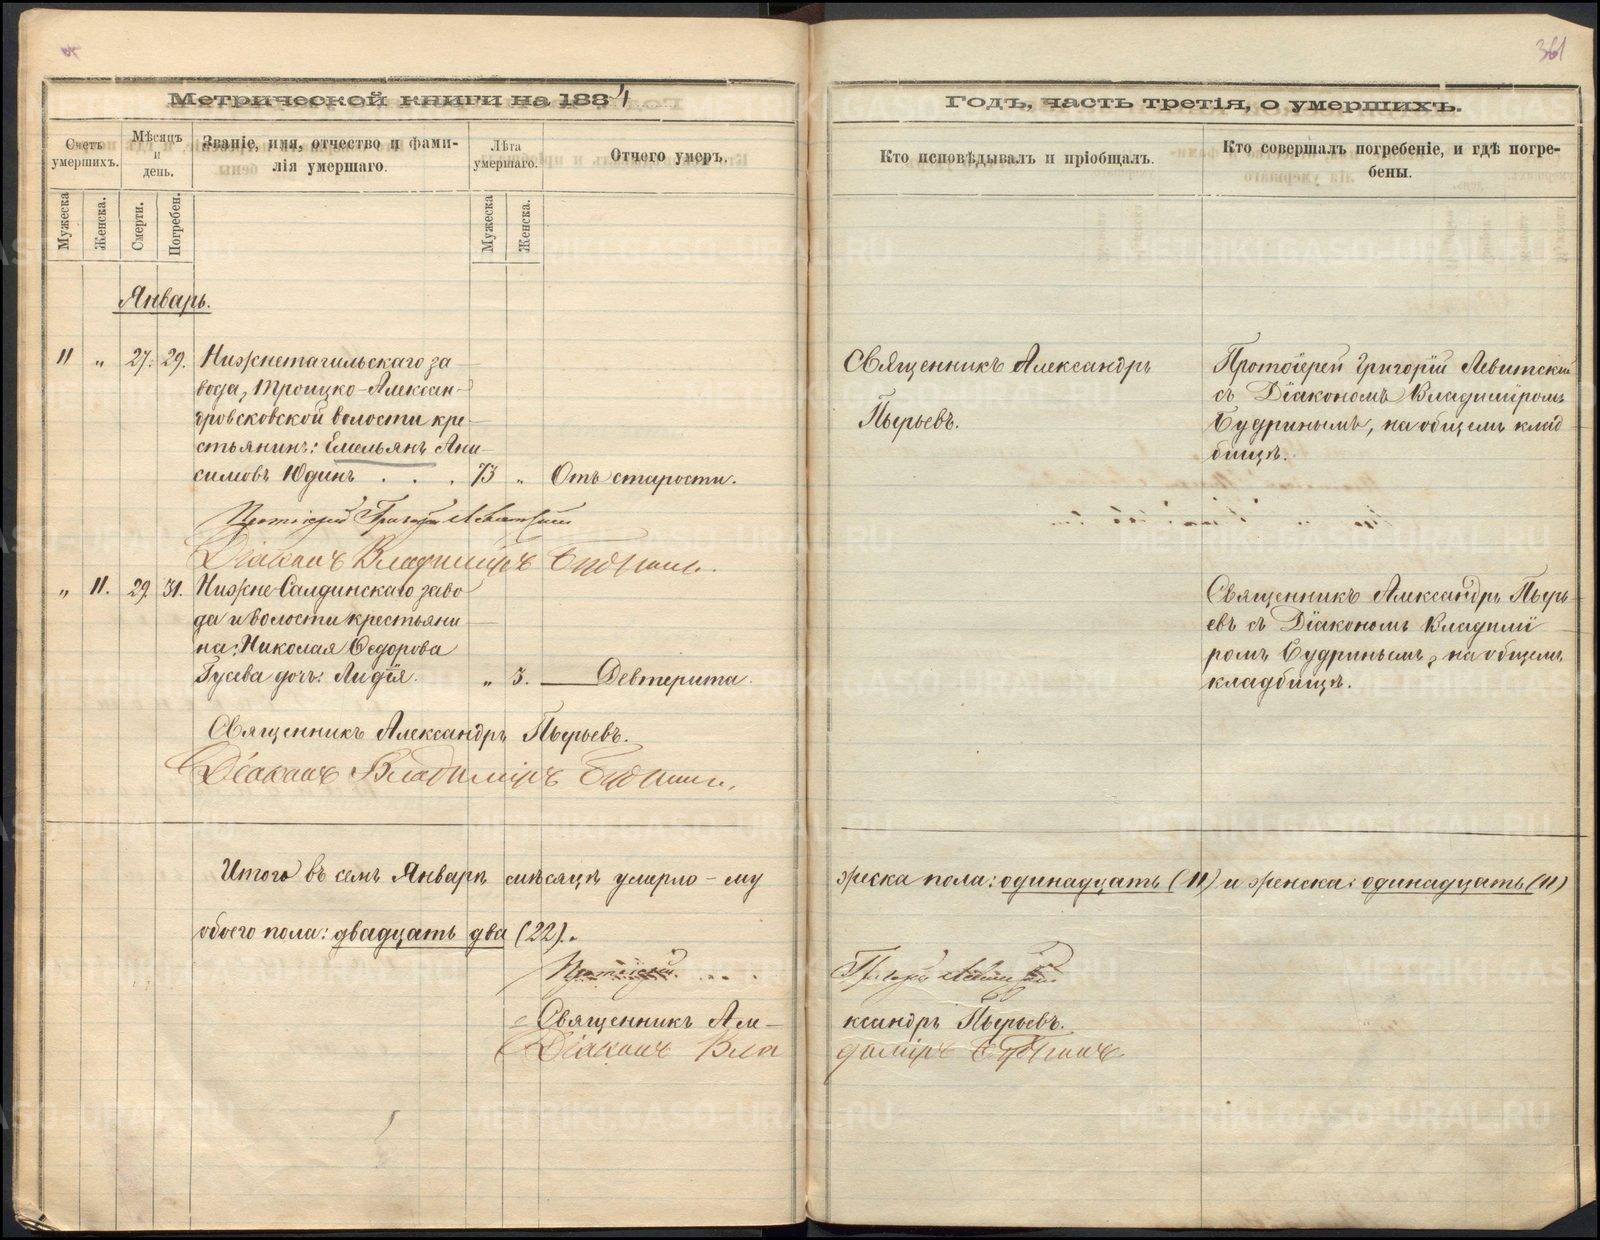 361
Метрической книги на 1884
Годъ, часть третія, о умершихъ.
Счетъ умершихъ.
Мѣсяцъ и день.
Званіе, имя, отчество и фами-
лія умершаго.
Лѣта умершаго.
Отчего умеръ.
Кто исповѣдывалъ и пріобщалъ.
Кто совершалъ погребеніе, и гдѣ погре-
бены.
Мужеска
Женска.
Смерти.
Погребен.
Мужеска
Женска.
Январь.
11 „ 27. 29. Нижнетагильскаго за
вода, Троицко-Алексан-
дровсковской волости кре-
стьянинъ: Емельянъ Ани
симовъ Юдинъ . . . 73 „ Отъ старости.
Священникъ Александръ
Пырьевъ.
Протоіерей Григорій Левитскій
съ Діакономъ Владиміромъ
Будринымъ, на общемъ клад
бищѣ.
Протоіерей Григорій Левитскій
Діаконъ Владиміръ Будринъ.
„ 11. 29. 31. Нижне-Салдинскаго заво
да и волости крестьяни
на: Николая Ѳедорова
Гусева дочь: Лидія. „ 3. Девтерита.
Священникъ Александръ Пырь
евъ съ Діакономъ Владимі
ромъ Будринымъ, на общемъ
кладбищѣ.
Священникъ Александръ Пырьевъ.
Діаконъ Владиміръ Будринъ.
Итого въ семъ Январѣ мѣсяцѣ умерло – му
жеска пола: одинадцать (11) и женска: одинадцать (11)
обоего пола: двадцать два (22).
Протоіерей Григорій Левитскій
Священникъ Але-
ксандръ Пырьевъ.
Діаконъ Вла
диміръ Будринъ
METRIKI.GASO-URAL.RU